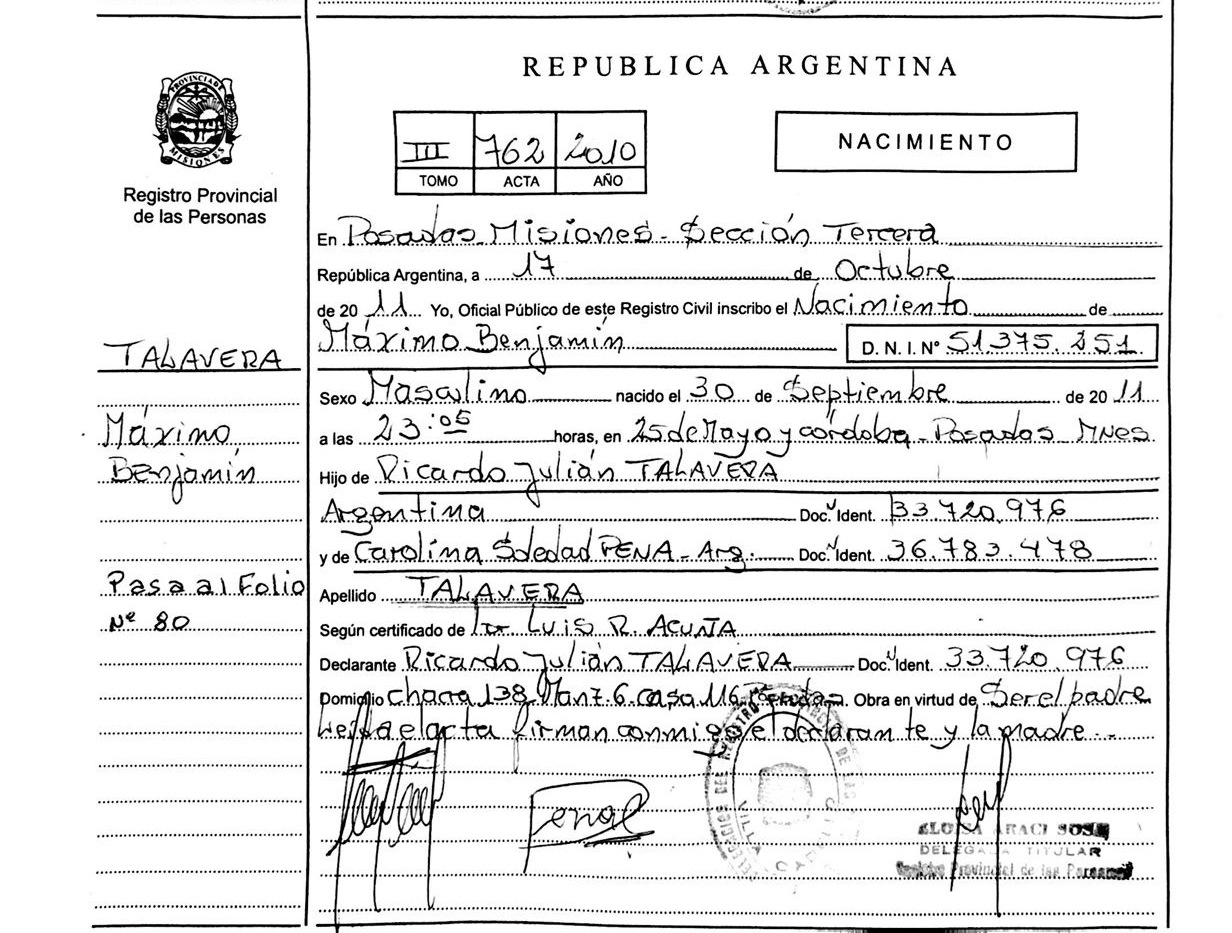 REPUBLICA ARGENTINA
PROVINCIA DE MISIONES
Registro Provincial
de las Personas
III 762 2010
TOMO ACTA AÑO
NACIMIENTO
En Posadas Misiones - Sección Tercera
República Argentina, a 17 de Octubre
de 20 11 Yo, Oficial Público de este Registro Civil inscribo el Nacimiento de
Máximo Benjamín D. N. I. Nº 51.375.251
TALAVERA
Máximo
Benjamín
Pasa al Folio
Nº 80
Sexo Masculino nacido el 30 de Septiembre de 20 11
a las 23:05 horas, en 25 de Mayo y córdoba - Posadas Mnes
Hijo de Ricardo Julián TALAVERA
Argentina Doc. Ident. 33.720.976
y de Carolina Soledad PENA - Arg. Doc. Ident. 36.783.478
Apellido TALAVERA
Según certificado de Dr Luis R. ACUÑA
Declarante Ricardo Julián TALAVERA Doc. Ident. 33.720.976
Domicilio chacra 138 Manz. 6. casa 116 Posadas Obra en virtud de Ser el padre
Leída el acta firman conmigo el declarante y la madre
DEL REGISTRO DE LAS
VILLA
ELOISA ARACI SOSA
DELEGADA TITULAR
Registro Provincial de las Personas